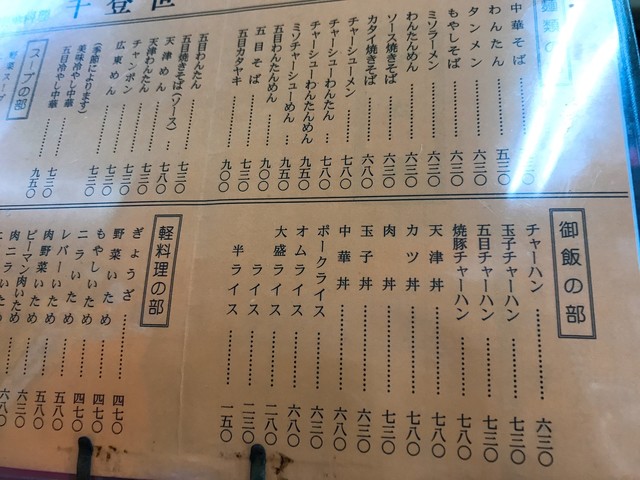 麺類の
中華そば
わんたん ………… 五三〇
タンメン ………… 六三〇
もやしそば ………… 六三〇
ミソラーメン ………… 六三〇
わんたんめん ………… 六三〇
ソース焼きそば ………… 六三〇
カタイ焼きそば ………… 六八〇
チャーシューメン ………… 七八〇
チャーシューわんたん … 七八〇
チャーシューわんたんめん 九五〇
ミソチャーシューめん … 九五〇
五目わんたんめん ……… 九〇〇
五目そば ………… 七三〇
五目カタヤキ ………… 九〇〇
五目わんたん ………… 七三〇
五目焼きそば(ソース) … 七八〇
天津めん ………… 七三〇
天津わんたん ………… 七三〇
チャンポン ………… 七三〇
広東めん ………… 七三〇
(季節によります)
美味冷やし中華
五目冷やし中華 ……… 九五〇
スープの部
野菜スープ
御飯の部
チャーハン ………… 六三〇
玉子チャーハン ………… 七三〇
五目チャーハン ………… 七三〇
焼豚チャーハン ………… 七八〇
天津丼 ………… 七八〇
カツ丼 ………… 七八〇
肉丼 ………… 七三〇
玉子丼 ………… 六三〇
中華丼 ………… 六八〇
ポークライス ………… 六三〇
オムライス ………… 六八〇
大盛ライス ………… 二八〇
ライス ………… 二三〇
半ライス ………… 一五〇
軽料理の部
ぎょうざ ………… 四七〇
野菜いため ………… 四七〇
もやしいため ………… 四七〇
ニラいため ………… 四七〇
レバーいため ………… 五八〇
肉野菜いため ………… 五八〇
ピーマン肉いため ……… 六三〇
肉ニラいため ………… 六八〇